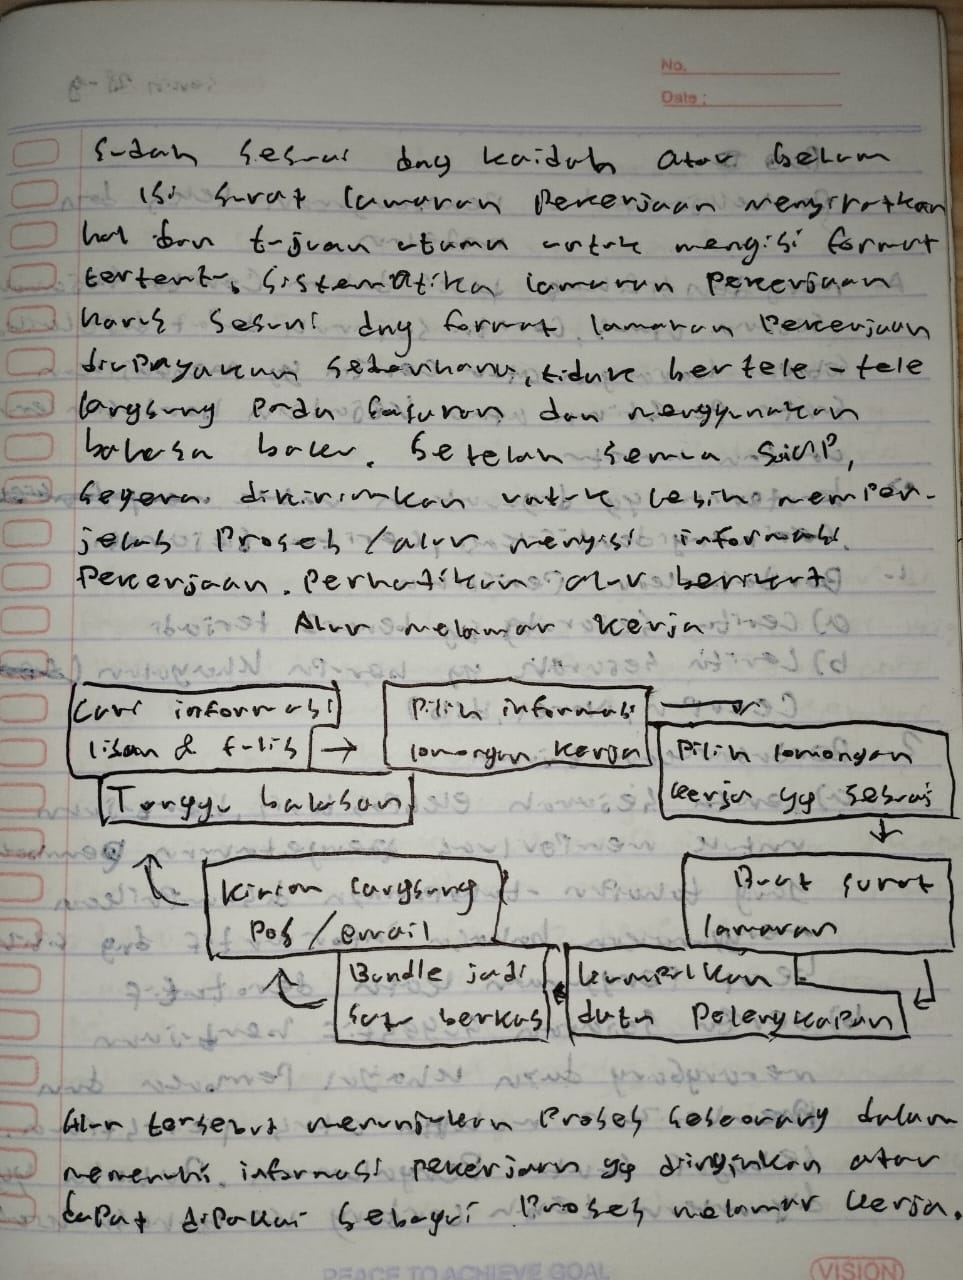 No.
Date:
sudah sesuai dng kaidah atau belum
isi surat lamaran pekerjaan menyiratkan
hal dan tujuan utama untuk mengisi format
tertentu, sistematika lamaran pekerjaan
harus sesuai dng format lamaran pekerjaan
diupayakan sederhana, tidak bertele-tele
langsung pada sasaran dan menggunakan
bahasa baku. Setelah semua siap,
segera dikirimkan untuk lebih memper-
jelas proses/alur mengisi informasi
pekerjaan. Perhatikan alur berikut
Alur melamar kerja
Cari informasi
lisan & tulis →
Pilih informasi
lowongan kerja
Pilih lowongan
kerja yg sesuai
Buat surat
lamaran
kumpulkan
data pelengkapan
Bundle jadi
satu berkas
Kirim langsung
pos/email
Tunggu balasan
Alur tersebut menunjukan proses seseorang dalam
memenuhi informasi pekerjaan yg diinginkan atau
dapat dipakai sebagai proses melamar kerja.
PEACE TO ACHIEVE GOAL
VISION